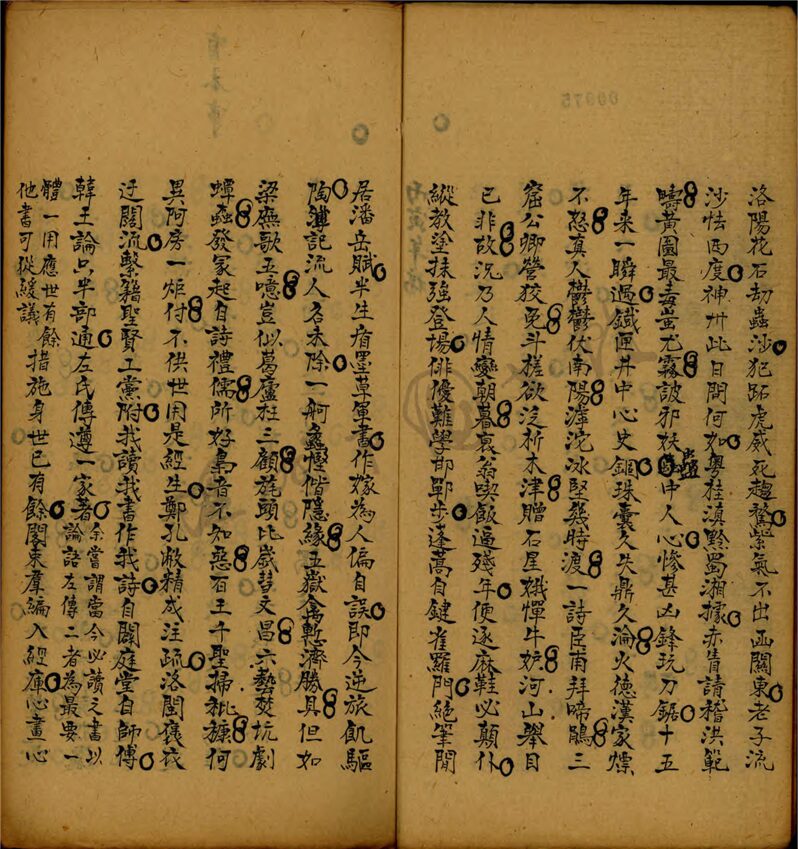 洛陽花石劫蟲沙犯跖虎威死趨驚紫氣不出函關東老子流
沙怯西度神州此日問何如粵桂滇黔蜀湘據亦倩請稽洪範
疇黃圖最毒蚩尤霧詖邪妖蠱中人心慘甚凶鋒玩刀鋸十五
年來一瞬過鐵匣井中心史錮珠囊久失鼎久淪火德漢家熛
不怒真人鬱鬱伏南陽滹沱冰堅幾時渡一詩臣甫拜啼鵑三
窟公卿營狡兔斗槎欲泛析木津贈石星娥憚牛妒河山舉目
已非故況乃人情變朝暮哀翁喫飯逼殘年便逐麻鞋必顛仆
縱教塗抹強登場俳優難學邯鄲步蓬蒿自鍵雀羅門絕筆閒
居潘岳賦半生盾墨草軍書作嫁為人偏自誤即今逆旅飢驅
陶簿記流人名未除一舸蠡慳偕隱緣五嶽禽暫濟勝具但如
梁廡歌五噫豈似葛廬枉三顧旄頭比歲彗文昌六藝焚坑劇
蟫蟲發冢起自詩禮儒所好梟音不知惡百王千聖掃秕糠何
異阿房一炬付不供世用是經生鄭孔敝精成注疏洛閩褒衣
迂闊流繫籍聖賢工黨附我讀我書作我詩自闢庭堂自師傅
韓王論只半部通左氏傳遵一家著余嘗謂當今必讀之書以
論語左傳二者為最要一
體一用應世有餘
他書可從緩議
措施身世已有餘閣束羣編入經庫心畫心